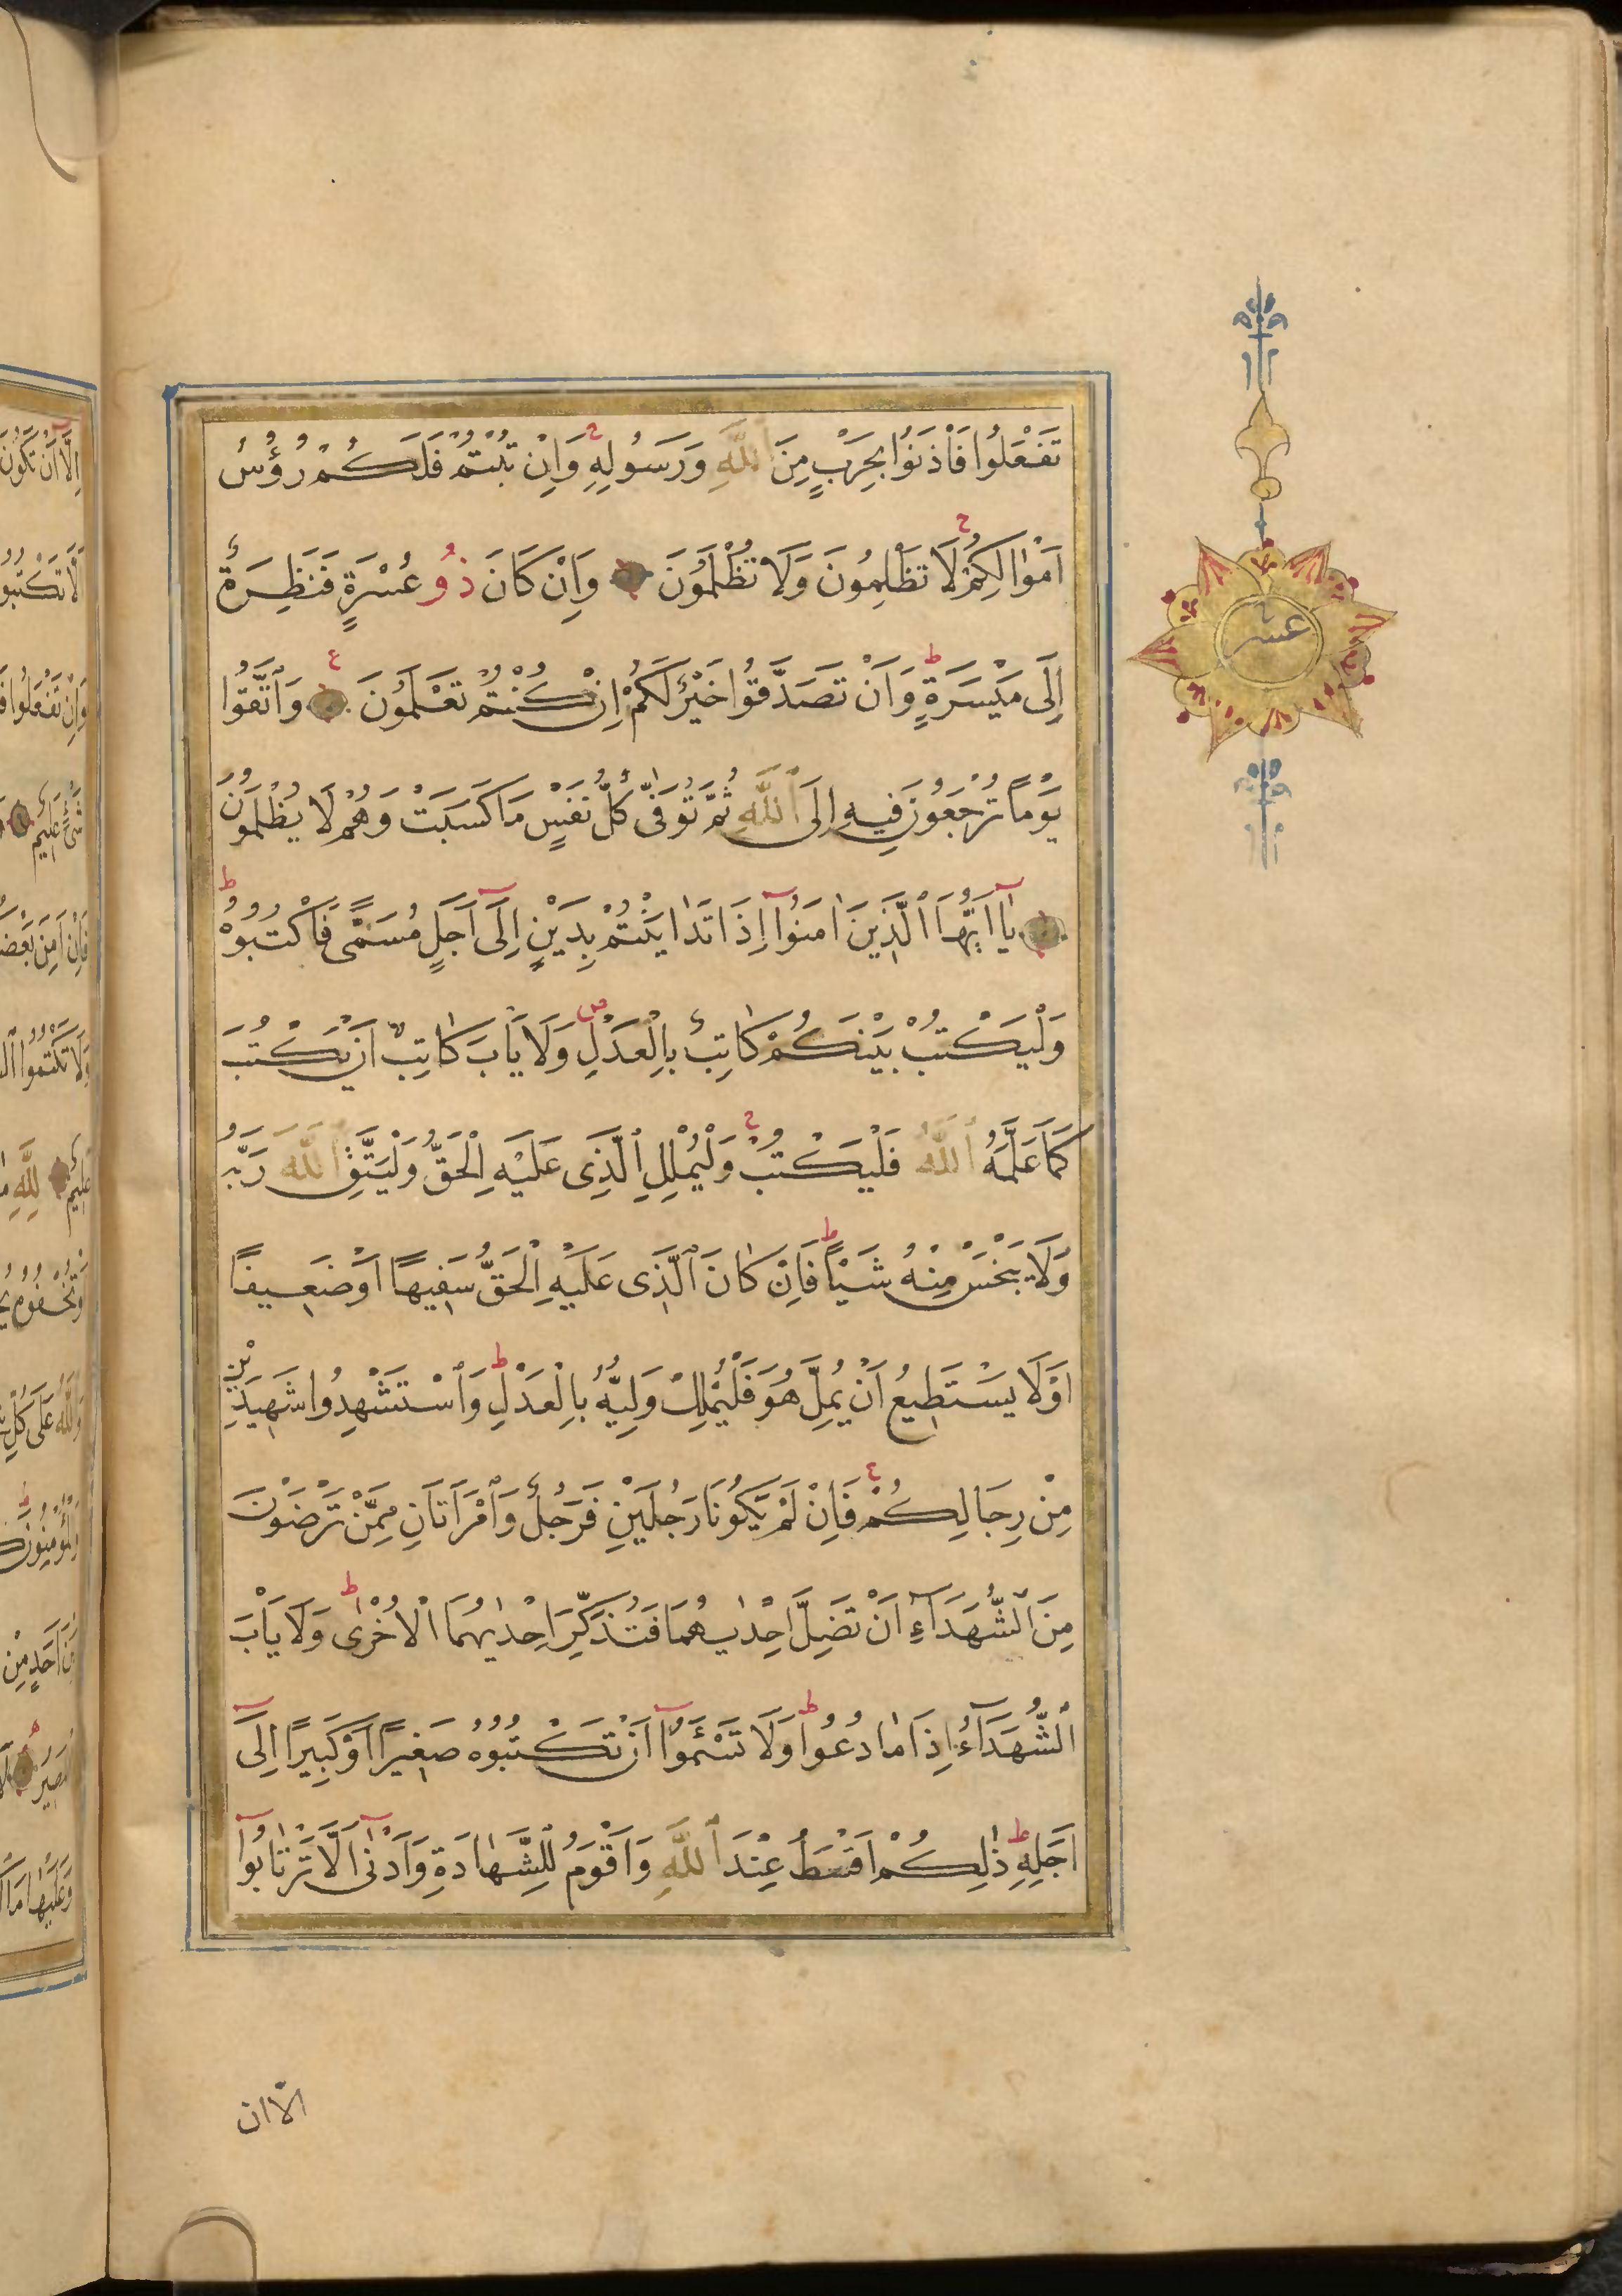 تَفْعَلُوا فَأْذَنُوا بِحَرْبٍ مِنَ ٱللَّهِ وَرَسُولِهِ ۚ وَاِنْ تُبْتُمْ فَلَكُمْ رُؤُسُ
اَمْوَالِكُمْ ۚ لَا تَظْلِمُونَ وَلَا تُظْلَمُونَ وَاِنْ كَانَ ذُو عُسْرَةٍ فَنَظِرَةٌ
اِلَى مَيْسَرَةٍ ۭ وَاَنْ تَصَدَّقُوا خَيْرٌ لَكُمْ اِنْ كُنْتُمْ تَعْلَمُونَ ع وَاتَّقُوا
يَوْمًا تُرْجَعُونَ فِيهِ اِلَى ٱللَّهِ ثُمَّ تُوَفّٰى كُلُّ نَفْسٍ مَا كَسَبَتْ وَهُمْ لَا يُظْلَمُونَ
يَآ اَيُّهَا الَّذِينَ اٰمَنُوآ اِذَا تَدَايَنْتُمْ بِدَيْنٍ اِلَىٓ اَجَلٍ مُسَمًّى فَاكْتُبُوهُ ط
وَلْيَكْتُبْ بَيْنَكُمْ كَاتِبٌ بِالْعَدْلِ ص وَلَا يَاْبَ كَاتِبٌ اَنْ يَكْتُبَ
كَمَا عَلَّمَهُ ٱللَّهُ فَلْيَكْتُبْ ج وَلْيُمْلِلِ الَّذِى عَلَيْهِ الْحَقُّ وَلْيَتَّقِ ٱللَّهَ رَبَّهُ
وَلَا يَبْخَسْ مِنْهُ شَيْئًا ط فَاِنْ كَانَ الَّذِى عَلَيْهِ الْحَقُّ سَفِيهًا اَوْ ضَعِيفًا
اَوْ لَا يَسْتَطِيعُ اَنْ يُمِلَّ هُوَ فَلْيُمْلِلْ وَلِيُّهُ بِالْعَدْلِ ط وَاسْتَشْهِدُوا شَهِيدَيْنِ
مِنْ رِجَالِكُمْ ج فَاِنْ لَمْ يَكُونَا رَجُلَيْنِ فَرَجُلٌ وَامْرَاَتَانِ مِمَّنْ تَرْضَوْنَ
مِنَ الشُّهَدَآءِ اَنْ تَضِلَّ اِحْدٰيهُمَا فَتُذَكِّرَ اِحْدٰيهُمَا الْاُخْرٰى ط وَلَا يَاْبَ
الشُّهَدَآءُ اِذَا مَا دُعُوا ط وَلَا تَسْئَمُوآ اَنْ تَكْتُبُوهُ صَغِيرًا اَوْ كَبِيرًا اِلٰىٓ
اَجَلِهِ ط ذٰلِكُمْ اَقْسَطُ عِنْدَ ٱللَّهِ وَاَقْوَمُ لِلشَّهَادَةِ وَاَدْنٰىٓ اَلَّا تَرْتَابُوآ
الّا ان
عشر